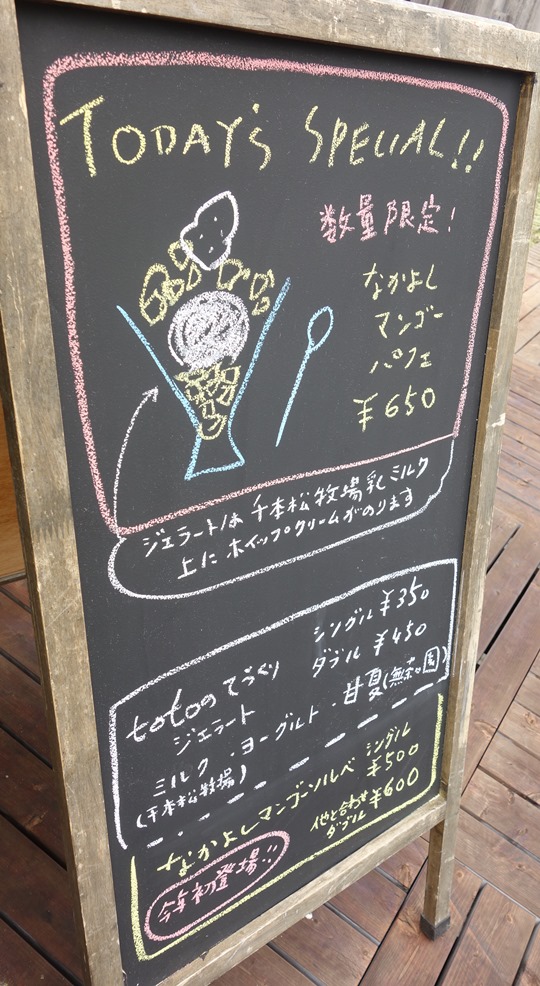 TODAY'S SPECIAL!!
数量限定!
なかよし
マンゴー
パフェ
¥650
ジェラートは千本松牧場乳ミルク
上にホイップクリームがのります
totoのてづくり
ジェラート
シングル ¥350
ダブル ¥450
ミルク・ヨーグルト・甘夏(無茶々園)
(千本松牧場)
なかよしマンゴーソルベ
シングル
¥500
他と合わせ
ダブル ¥600
今年初登場!!